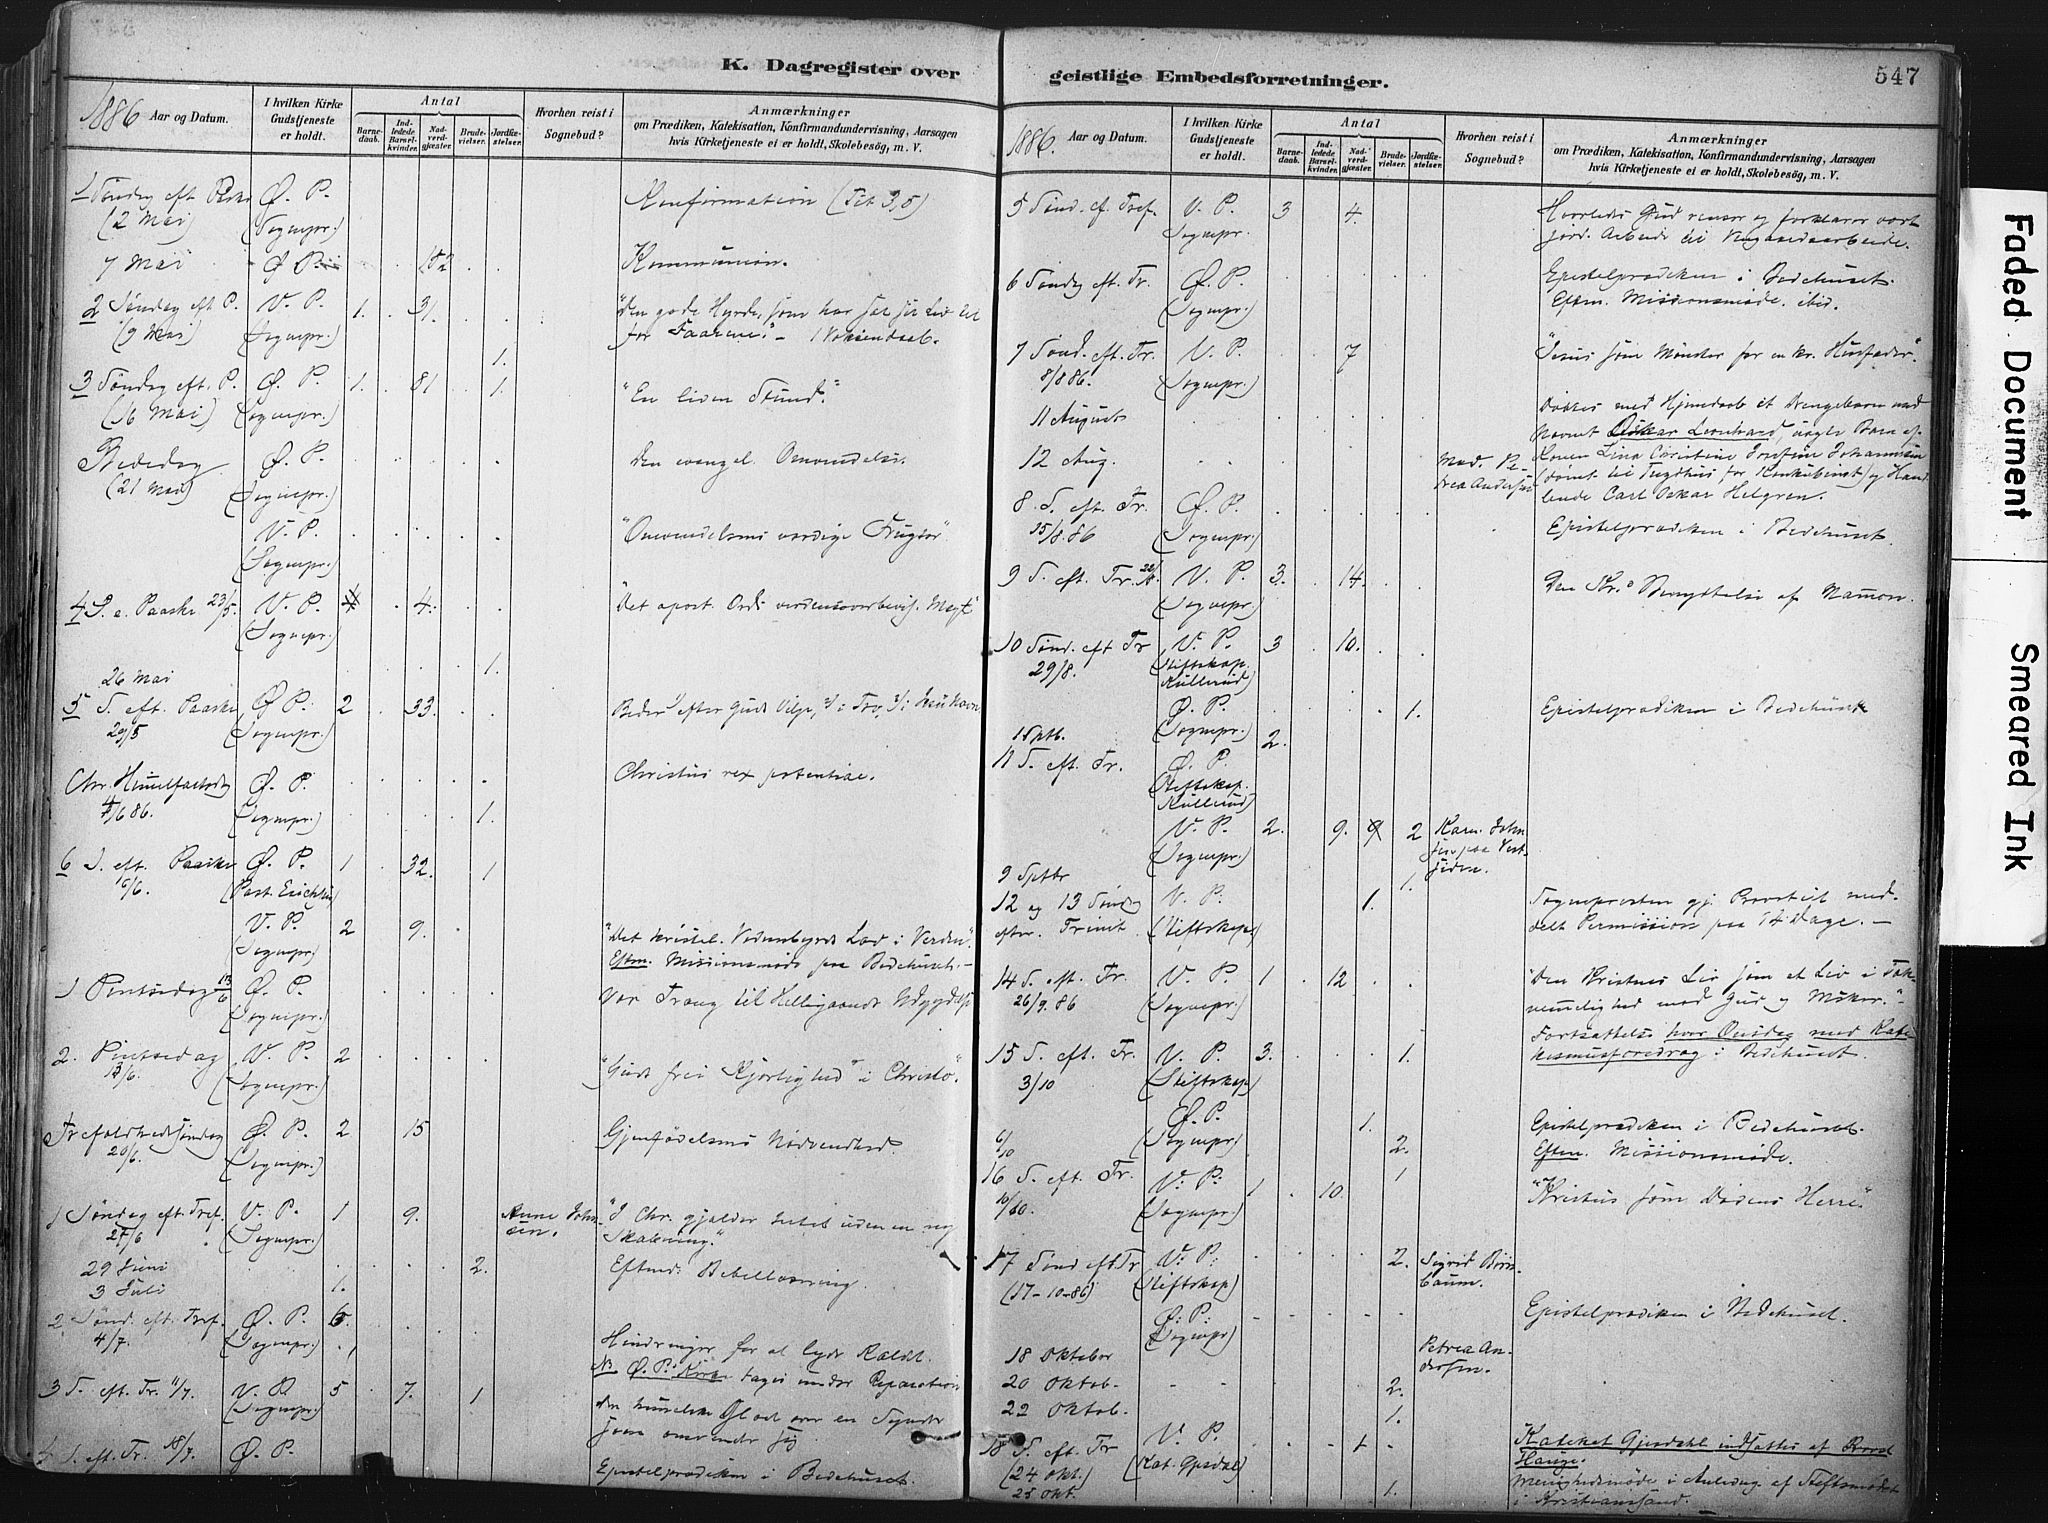 K. Dagregister over
1886 Aar og Datum.
I hvilken Kirke Gudstjeneste er holdt.
Antal
Barnedaab.
Indledede Barselkvinder.
Nadverdgjæster.
Brudevielser.
Jordfæstelser.
Hvorhen reist i Sognebud?
Anmærkninger
om Prædiken, Katekisation, Konfirmandundervisning, Aarsagen
hvis Kirketjeneste ei er holdt, Skolebesög, m. V.
1 Søndag eft. Paaske Ø. P. Konfirmation (Tit 3,5)
(2 Mai) (Sognepr.)
7 Mai Ø P. 182 Kommunion.
2 Søndag eft P. V. P. 1. 31. "Den gode Hyrde, som har sat sit Liv til
(9 Mai) (Sognepr.) for Faarene." –
1.
3 Søndag eft. P. Ø. P. 1. 81 1. "En liden Stund."
(16 Mai) (Sognepr.)
Bededag Ø. P. Den evangel. Omvendelse.
(21 Mai) (Sognepr.)
V. P. "Omvendelsens værdige Frugter"
(Sognepr.)
4 S. e. Paaske 23/5. V. P. 4. "Det apost. Ords verdensoverbevis. Magt"
(Sognepr.)
26 Mai 1.
5 S. eft. Paaske Ø P. 2 33. Beder 1/ efter Guds Vilje, 2/ i Tro, 3/ i Jesu Navn
29/5 (Sognepr.)
Chr. Himmelfartsdag Ø. P. Christus rex potentiae.
/6 86. (Sognepr.) 1.
6 S. eft. Paaske Ø. P. 1 32. 1
6/6. (Past. Erichsen)
V. P. 2 9. "Det kristel. Vidnesbyrds Lod i Verden".
(Sognepr.) Eftm. Missionsmøde paa Bedehuset. –
1 Pintsedag 13/6 Ø. P. Vor Trang til Helligaands
(Sognepr.)
2. Pintsedag V. P. 2 "Guds frie Kjærlighed" i Christo".
13/6. (Sognepr.)
Trefoldhedssøndag Ø. P. 2 15 Gjenfødelsens Nødvendhed.
20/6. (Sognepr.)
1 Søndag eft. Tref. V. P. 1 9. Anne Johnsen. "I Chr. gjælder intet uden en ny
27/6 (Sognepr.) Skabning."
29 Juni 2. Eftmd. Bibellæsning.
3 Juli 1.
2. Sønd. eft. Tref. Ø. P. 6. Hindringer for at lyde Kaldet.
4/7. (Sognepr.) NB. Ø. P.' Kirke tages under Reparation
3 S. eft. Tr. 11/7. V. P 5 7. 1 Den himmelske Glæde over en Synder
(Sognepr.) som omvender sig
4 S. eft. Tr. 18/7. Ø. P. Epistelprædiken i Bedehuset.
geistlige Embedsforretninger.
547
1886. Aar og Datum.
I hvilken Kirke Gudstjeneste er holdt.
Antal
Barnedaab.
Indledede Barselkvinder.
Nadverdgjæster.
Brudevielser.
Jordfæstelser.
Hvorhen reist i Sognebud?
Anmærkninger
om Prædiken, Katekisation, Konfirmandundervisning, Aarsagen
hvis Kirketjeneste ei er holdt, Skolebesög, m. V.
5 Sønd. ef. Tref. V. P. 3 4. Hvorledes Gud renser og forklarer vort
Sognepr. jord. Arbeide til Rigets Arbeide.
6 Søndag eft. Tr. Ø. P. Epistelprædiken i Bedehuset.
(Sognepr.) Eftm. Missionsmøde. ibid.
7 Sønd. eft. Tr. V. P. 7 "Jesus som Mønster for en kr. Husfader".
8/8 86. (Sognepr.)
11 August Døbtes med Hjemedaab et Drengebarn med
Navnet Oskar Leonhard, uægte Barn af
12 Aug. Mad. Petrea Andersen Konen Lina Christine Josefine Johannesen
(dømt til Tugthus for Konkubinat) og Handlende Carl Oskar Helgren.
8 S. eft. Tr. Ø. P. Epistelprædiken i Bedehuset.
15/8 86 (Sognepr.)
9 S. eft. Tr. 22/8. V. P. 3. 14. Den Kr.s Benyttelse af Mammon.
(Sognepr.)
10 Sønd. eft Tr V. P. 3 10.
29/8. (Stiftskap. Kullerud)
Ø. P. 1. Epistelprædiken i Bedehuset
1 Sptb. (Sognepr.) 2.
11 S. eft. Tr. Ø. P.
(Stiftskap. Kullerud)
V. P. 2. 9. 2 Karn. Johnsen paa Vestsiden.
(Sognepr.)
9 Sptbr 1.
12 og 13 Søndag V. P. 1. Sognepresten gj. Provst til meddelt Permission paa 14 Dage. –
efter. Trinit. (Stiftskap.)
14 S. eft. Tr. V. P. 1 12 "Den Kristnes Liv som et Liv i Taknemmelighed mod Gud og Msker."
26/9. 86 (Sognepr.)
Fortsættels hver Onsdag med Katekismusforedrag i Bedehuset.
15 S. eft. Tr. V. P. 3. 1.
3/10 (Stiftskap)
Ø. P. 1. Epistelprædiken i Bedehuset.
6/10 (Sognepr.) 2. Eftm. Missionsmøde.
16 S. eft. Tr. V. P. 1 10. 1 "Kristus som Dødens Herre."
10/10. (Sognepr.)
17 Sønd eft Tr V. P. 2. Sigrid Birebaum.
(17-10-86) (Stiftskap)
Ø. P. Epistelprædiken i Bedehuset.
(Sognepr)
18 Oktober Petrea Andersen.
20 Oktob. 2.
22 Oktob. 1.
18 S. eft. Tr V. P. Kateket Gjesdahl indsattes af Provst Hauge.
(24 Okt.) (Kat. Gjesdal)
25 Okt. 1. Menighedsmøde i Anledng. af Stiftsmødet
i Kristianssand.
Faded Document
Smeared Ink